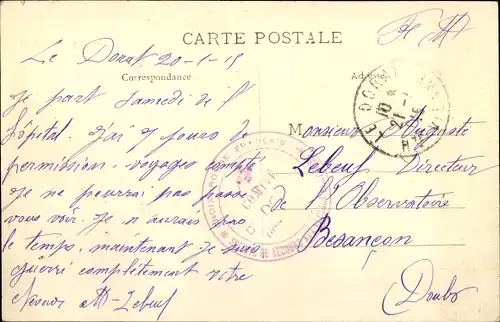 CARTE POSTALE
F M
Le Dorat 20-1-15
Correspondance
Je part Samedi de l'
hôpital. j'ai 7 jours de
permission, voyages compti
je ne pourrai pas passer
vous voir. Je n'aurais pas
le temps, maintenant je suis
guerri complètement votre
Neveu M Lebeuf
Monsieur Auguste
Lebeuf Directeur
de l'Observatoire
Besançon
Doubs
LE DORAT
10
21-1
15